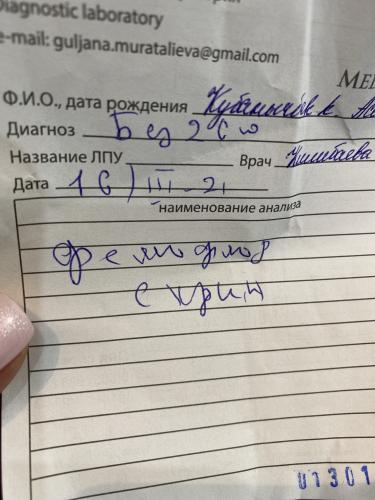 Diagnostic laboratory
e-mail: guljana.muratalieva@gmail.com
Ф.И.О., дата рождения
Диагноз Без 2
Название ЛПУ Врач
Дата 16) III - 21
наименование анализа
фемофлор
скрин
01301